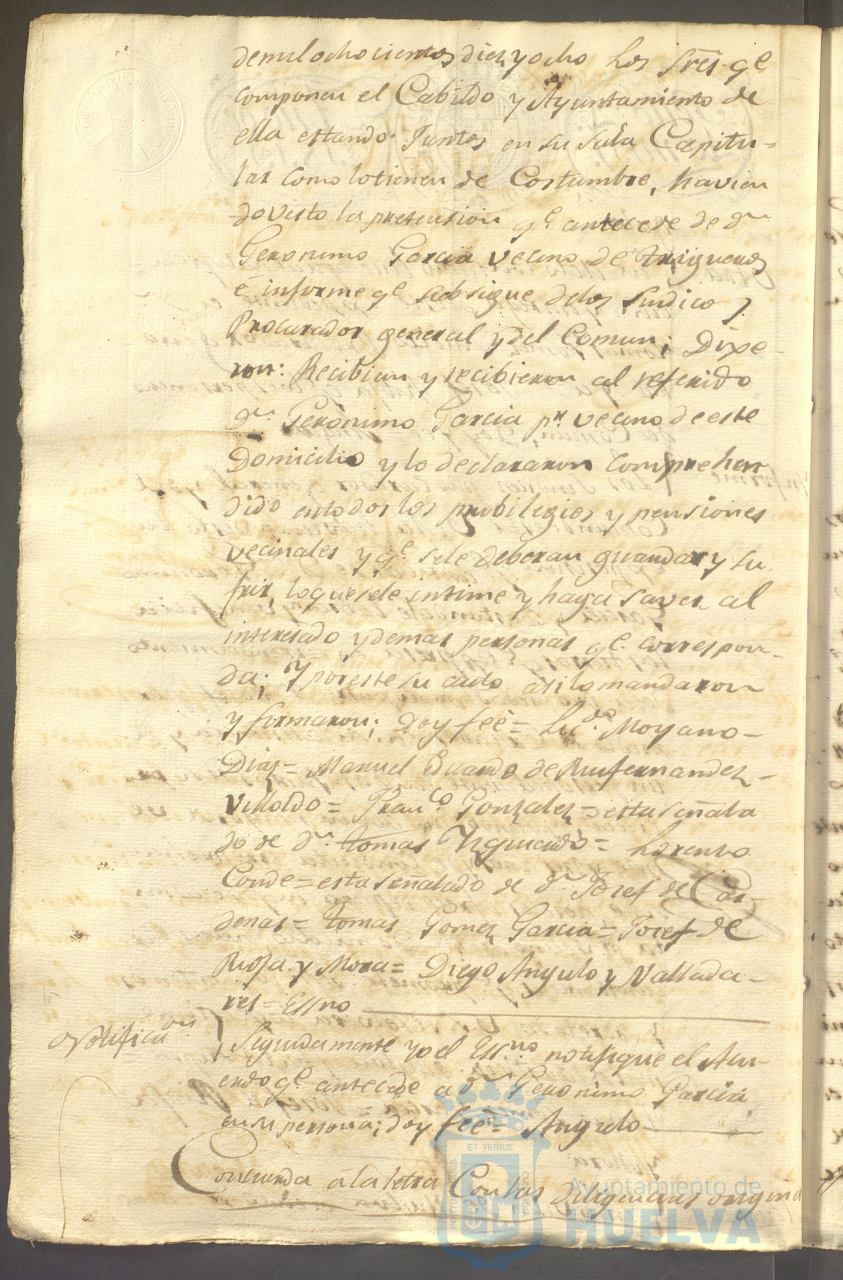 demilochocientos diez y ocho Los Sres. qe.
componen el Cabildo y Ayuntamiento de
ella estando Juntos en su Sala Capitu-
lar como lo tienen de Costumbre, havien
do visto la pretension qe. antecede de dn.
Geronimo Garcia vecino de trigueros
e informe qe. subsigue delos Sindico y
Procurador general y del Comun; Dixe-
ron: Recibian y recibieron al referido
dn. Geronimo Garcia pr. vecino de este
Domicilio y lo declararon comprehen
dido en todos los pribilegios y pensiones
vecinales y qe. sele deberan guardar y su
frir, lo que sele intime y haga saver al
interesado y demas personas qe. correspon-
da; Y por este su auto asi lo mandaron
y firmaron; doy feé = Licdo. Moyano =
Diaz = Manuel Eduardo de Ruifernandez =
Villoldo = Franco. Gonzalez = esta señala
do de dn. tomas Yzquierdo = Lorenzo
Conde = esta señalado de dn. Josef de Car-
denas = tomas Gomez Garcia = Josef de
Rioja y Mora = Diego Angulo y Vallada-
res = Essno
Notificacon.
Seguidamente yo el Essno. notifique el Acu-
erdo qe. antecede a dn. Geronimo Garcia
en su persona; doy feé = Angulo
Concuerda á la letra Con las diligencias origina
ET TERRÆ
Ayuntamiento de
HUELVA